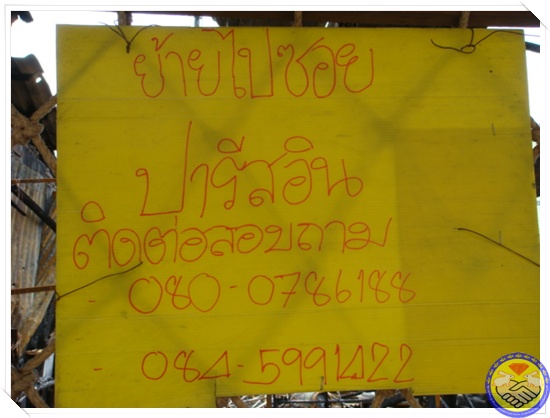 ย้ายไปซอย
ปารีสอิน
ติดต่อสอบถาม
- 080-0786188
- 084-5991422